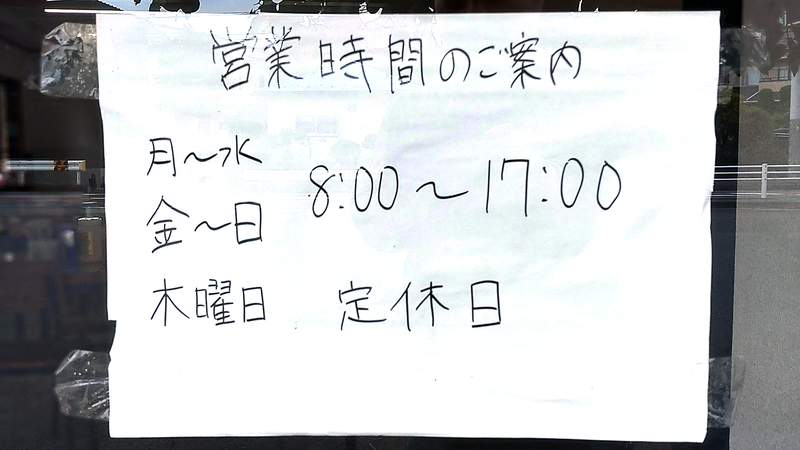 営業時間のご案内
月〜水
8:00〜17:00
金〜日
木曜日 定休日